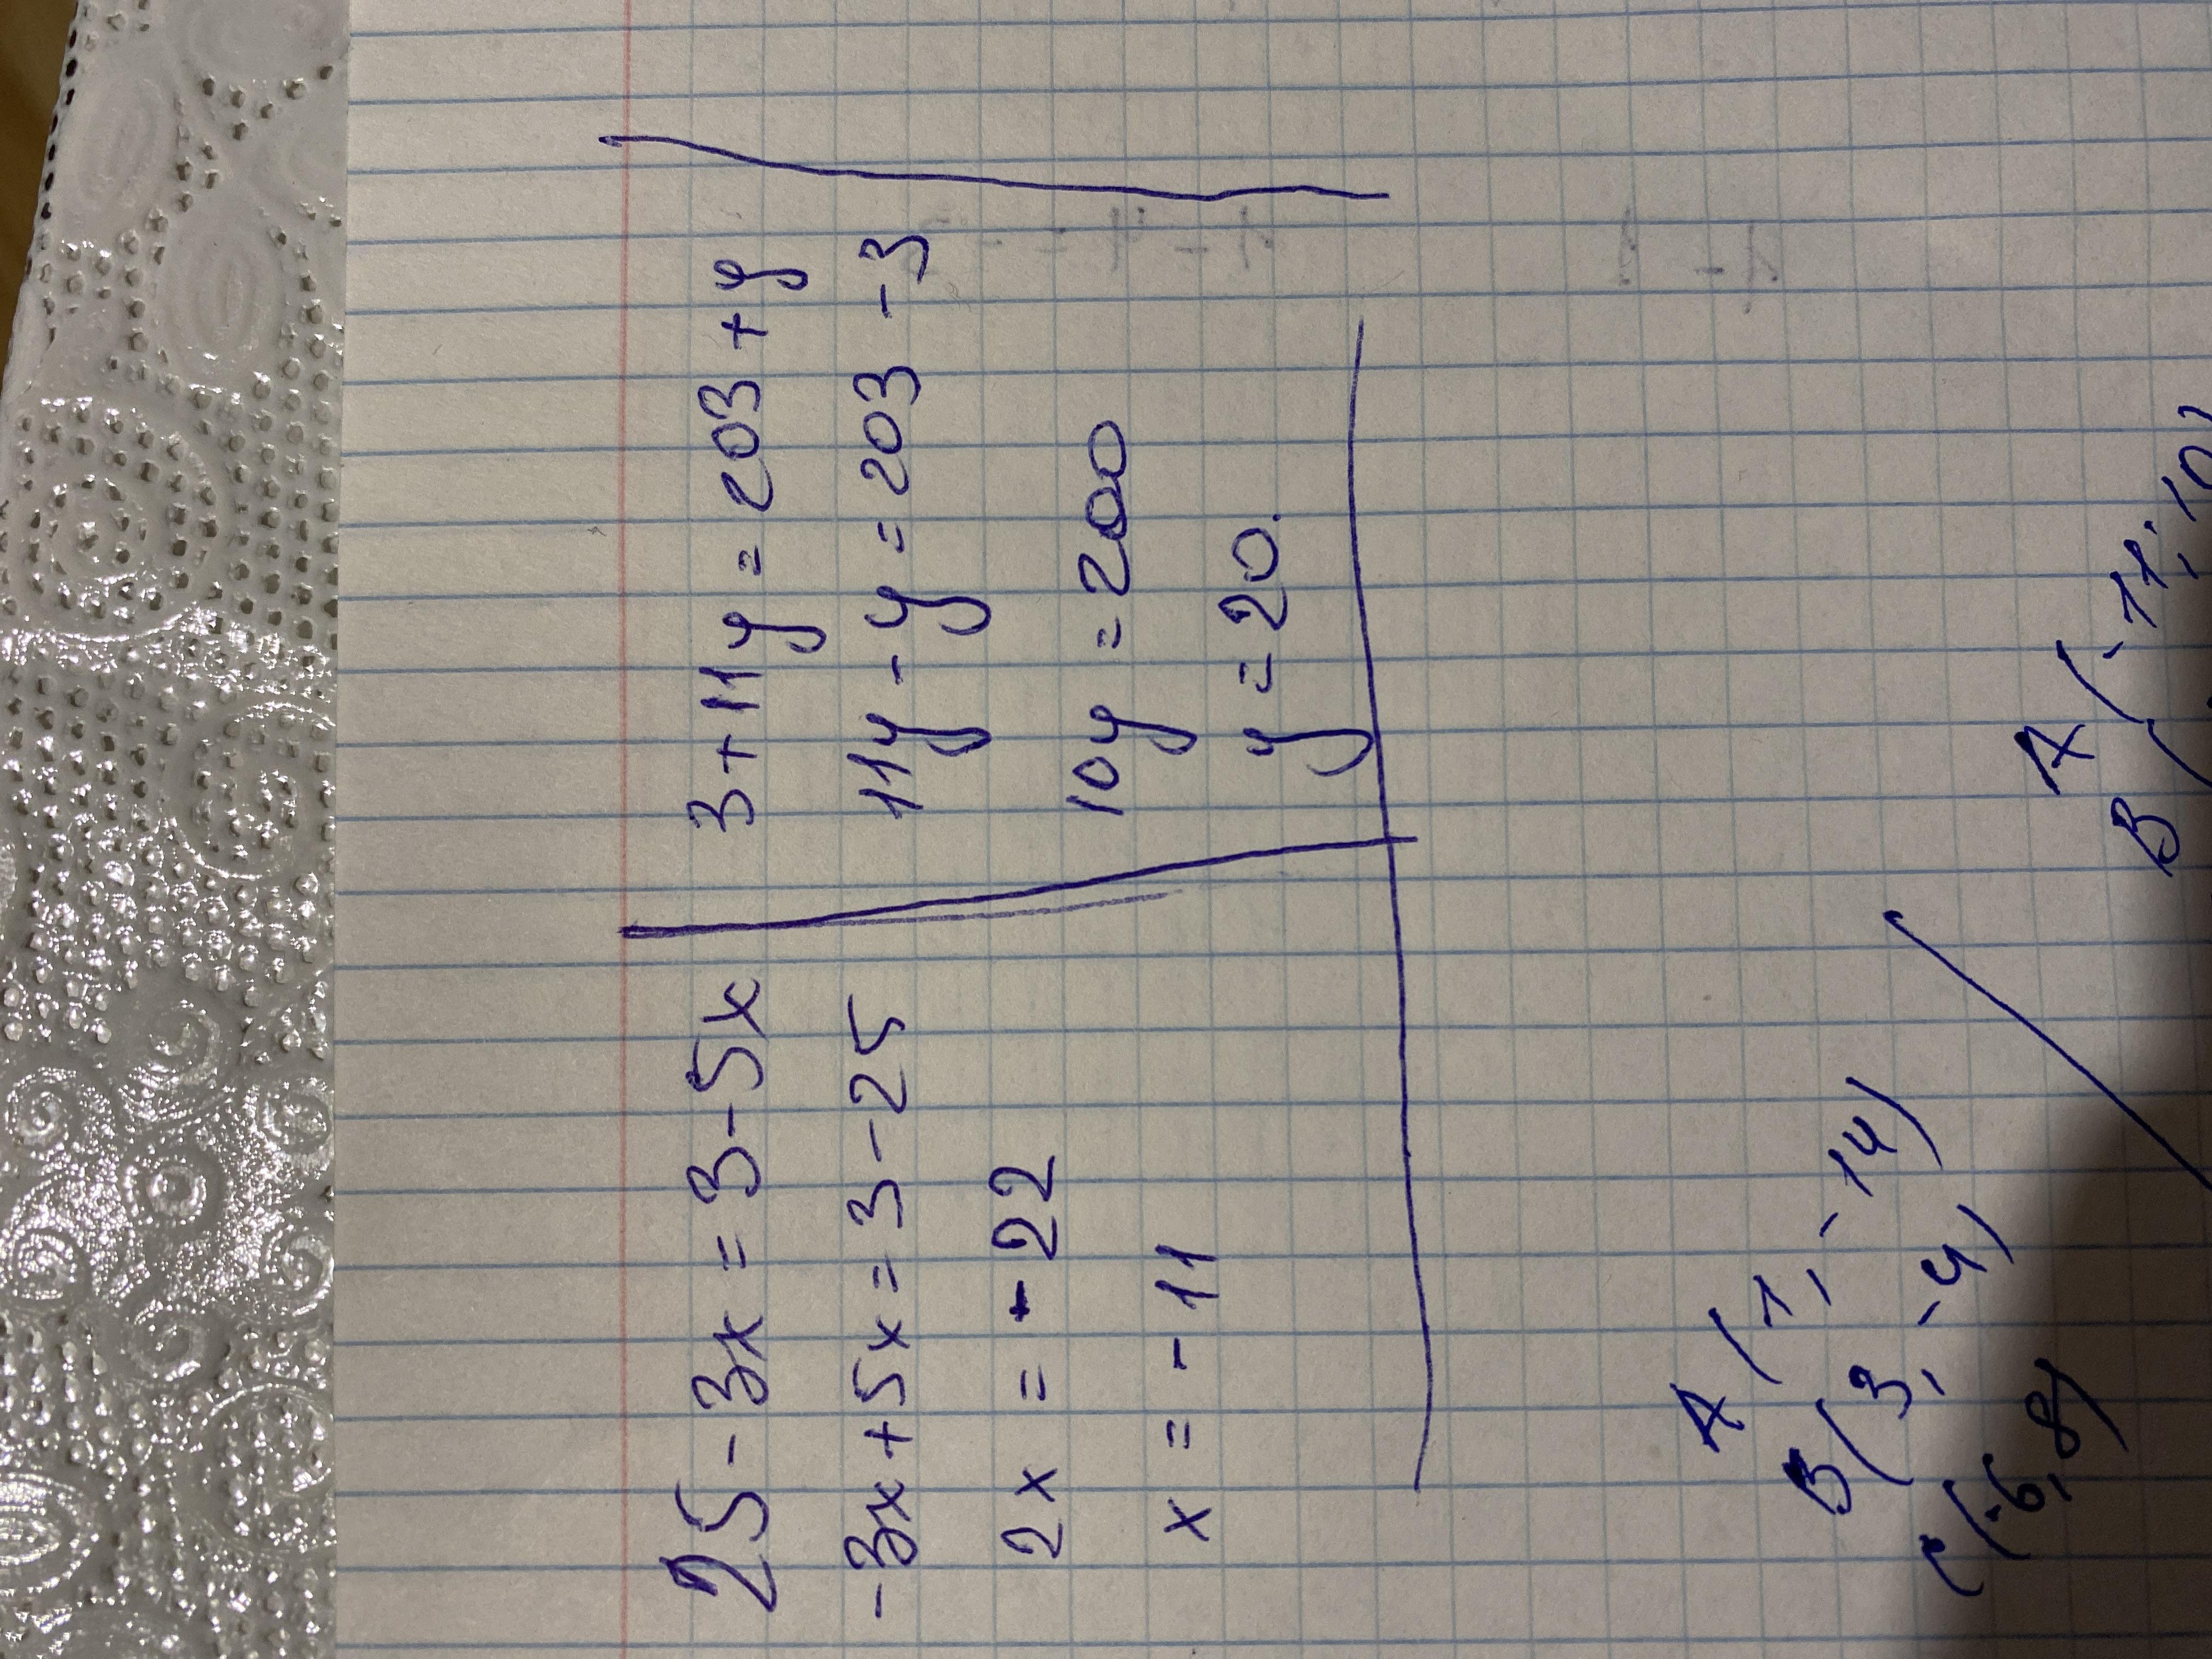 25 - 3x = 3 - 5x
-3x + 5x = 3 - 25
2x = -22
x = -11
3 + 11y = 203 + y
11y - y = 203 - 3
10y = 200
y = 20.
A (1, -14)
B (3, -4)
C (-6, 8)
A (-11; 10)
B (